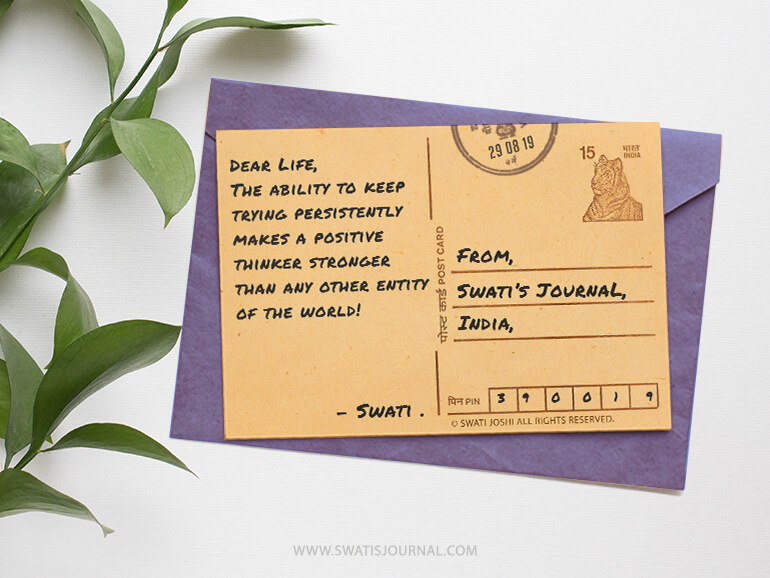 DEAR LIFE,
THE ABILITY TO KEEP
TRYING PERSISTENTLY
MAKES A POSITIVE
THINKER STRONGER
THAN ANY OTHER ENTITY
OF THE WORLD!
- SWATI .
पोस्ट कार्ड POST CARD
29 08 19
15 भारत
INDIA
FROM,
SWATI'S JOURNAL,
INDIA,
पिन PIN 3 9 0 0 1 9
© SWATI JOSHI ALL RIGHTS RESERVED.
WWW.SWATISJOURNAL.COM